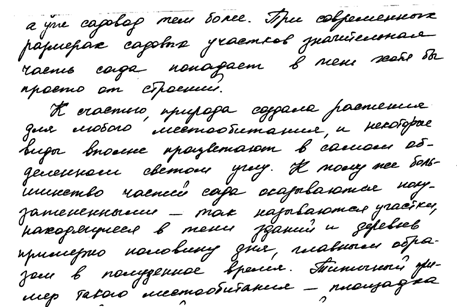 а уже садовод тем более. При современных
размерах садовых участков значительная
часть сада попадает в тень хотя бы
просто от строений.
К счастью, природа создала растения
для любого местообитания, и некоторые
виды вполне процветают в самом об-
деленном светом углу. К тому же боль-
шинство частей сада оказываются полу-
затененными – так называются участки,
находящиеся в тени зданий и деревьев
примерно половину дня, главным обра-
зом в полуденное время. Типичный при-
мер такого местообитания – площадка